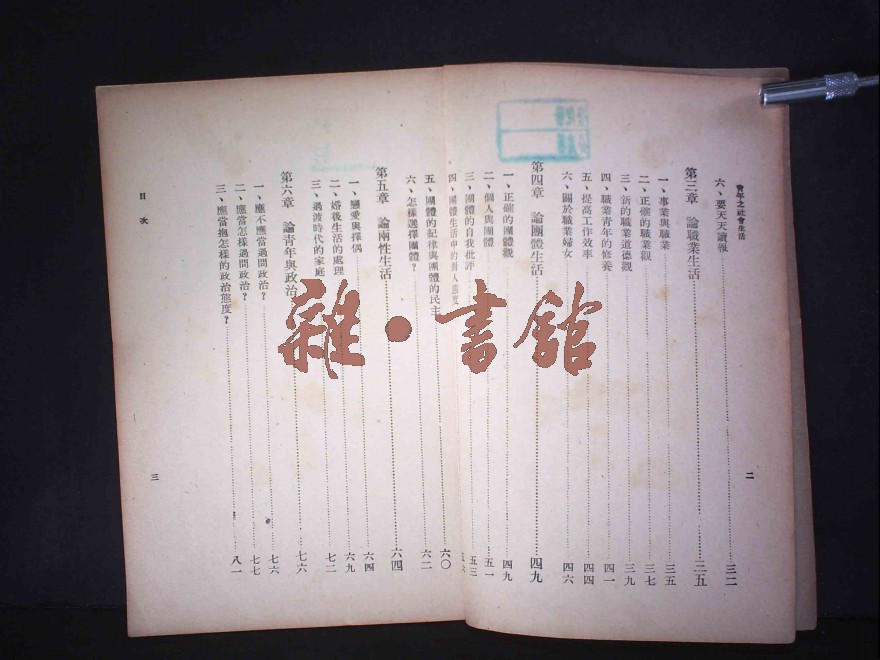 青年之社會生活
六、要天天讀報……三二
第三章 論職業生活……三五
一、事業與職業……三五
二、正確的職業觀……三七
三、新的職業道德觀……三九
四、職業青年的修養……四一
五、提高工作效率……四四
六、關於職業婦女……四六
第四章 論團體生活……四九
一、正確的團體觀……四九
二、個人與團體……五一
三、團體的自我批評……五三
四、團體生活中的對人態度……五
二
五、團體的紀律與團體的民主……六〇
六、怎樣選擇團體?……六二
第五章 論兩性生活……六四
一、戀愛與擇偶……六四
二、婚後生活的處理……六九
三、過渡時代的家庭……七二
第六章 論青年與政治……七六
一、應不應當過問政治?……七六
二、應當怎樣過問政治?……七七
三、應當抱怎樣的政治態度?……八一
目次
三
雜·書館